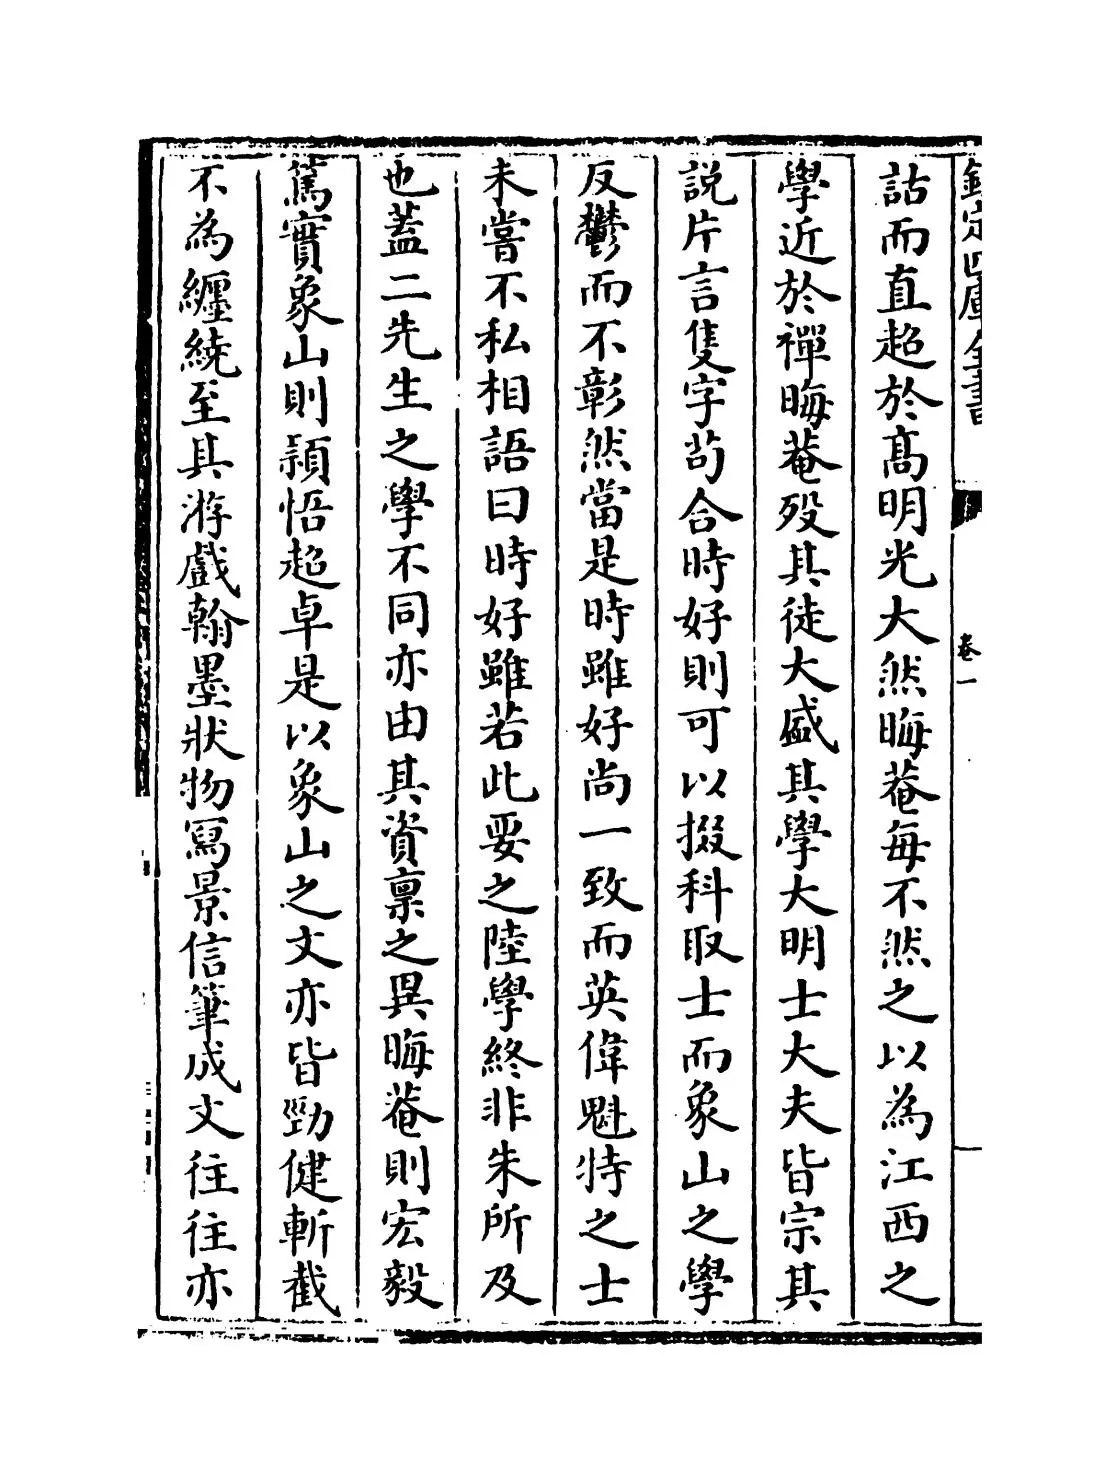 欽定四庫全書
卷一
詁而直超於髙明光大然晦菴每不然之以為江西之
學近於禪晦菴殁其徒大盛其學大明士大夫皆宗其
說片言隻字苟合時好則可以掇科取士而象山之學
反鬱而不彰然當是時雖好尚一致而英偉魁特之士
未嘗不私相語曰時好雖若此要之陸學終非朱所及
也葢二先生之學不同亦由其資稟之異晦菴則宏毅
篤實象山則頴悟超卓是以象山之文亦皆勁健斬截
不為纒繞至其游戲翰墨狀物寫景信筆成文往往亦